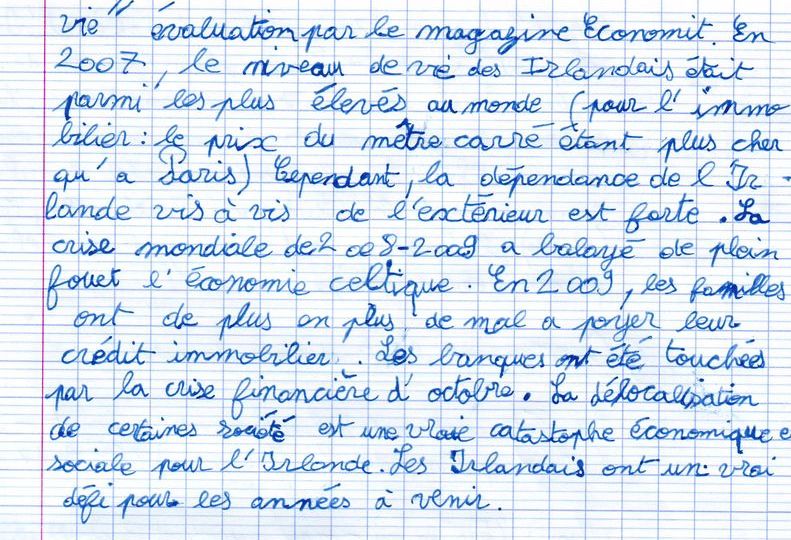 vie" évaluation par le magazine Economit. En
2007, le niveau de vie des Irlandais était
parmi les plus élevés au monde (pour l'immo
bilier : le prix du mètre carré étant plus cher
qu'a Paris) Cependant, la dépendance de l'Ir-
lande vis à vis de l'extérieur est forte. La
crise mondiale de 2008-2009 a balayé de plein
fouet l'économie celtique. En 2009, les familles
ont de plus en plus de mal a payer leur
crédit immobilier. Les banques ont été touchées
par la crise financière d'octobre. La délocalisation
de certaines société est une vraie catastrophe économique e
sociale pour l'Irlande. Les Irlandais ont un vrai
défi pour les années à venir.